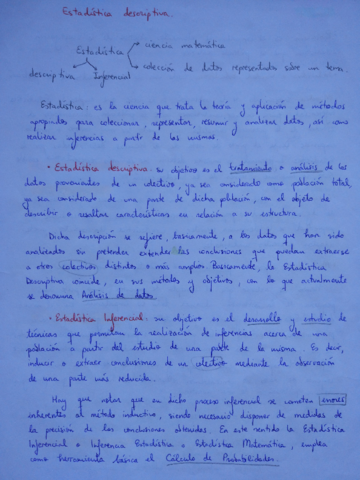 Estadística descriptiva.
Estadística
ciencia matemática
colección de datos representados sobre un tema
descriptiva Inferencial
Estadística: es la ciencia que trata la teoría y aplicación de métodos
apropiados para coleccionar, representar, resumir y analizar datos, así como
realizar inferencias a partir de los mismos.
• Estadística descriptiva: su objetivo es el tratamiento o análisis de los
datos provenientes de un colectivo, ya sea considerado como población total,
ya sea considerado de una parte de dicha población, con el objeto de
describir o resaltar características en relación a su estructura.
Dicha descripción se refiere, básicamente, a los datos que han sido
analizados sin pretender extender las conclusiones que puedan extraerse
a otros colectivos distintos o más amplios. Básicamente, la Estadística
Descriptiva coincide, en sus métodos y objetivos, con lo que actualmente
se denomina Análisis de datos.
• Estadística Inferencial: su objetivo es el desarrollo y estudio de
técnicas que permitan la realización de inferencias acerca de una
población a partir del estudio de una parte de la misma. Es decir,
inducir o extraer conclusiones de un colectivo mediante la observación
de una parte más reducida.
Hay que notar que en dicho proceso inferencial se cometen errores
inherentes al método inductivo, siendo necesario disponer de medidas de
la precisión de las conclusiones obtenidas. En este sentido la Estadística
Inferencial o Inferencia Estadística o Estadística Matemática, emplea
como herramienta básica el Cálculo de Probabilidades.